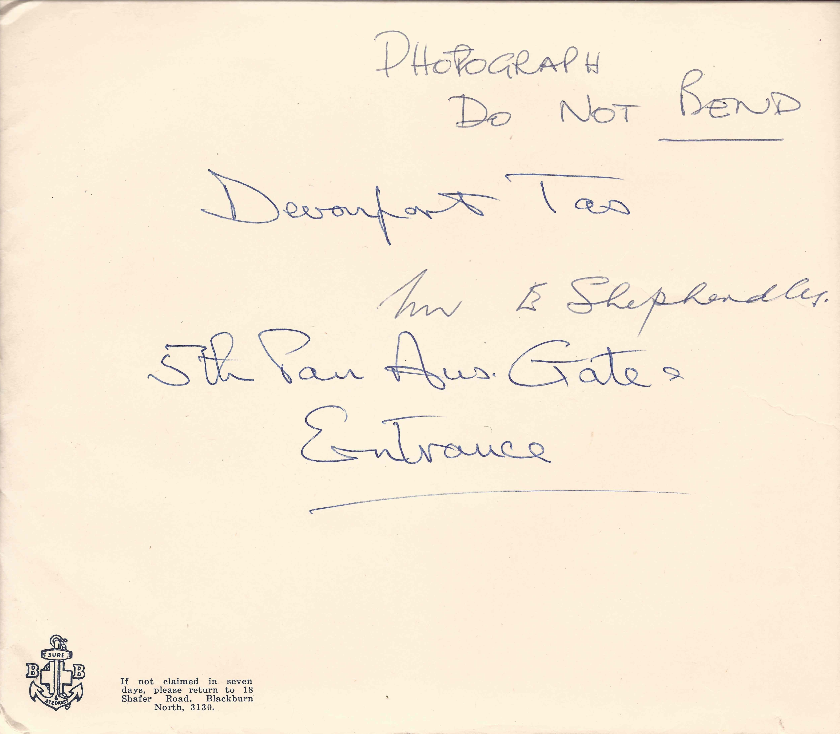 PHOTOGRAPH
DO NOT BEND
Devonport Tas
5th Pan Aus. Gate &
Entrance
B SURE B
& STEDFAST
If not claimed in seven
days, please return to 18
Shafer Road, Blackburn
North, 3130.